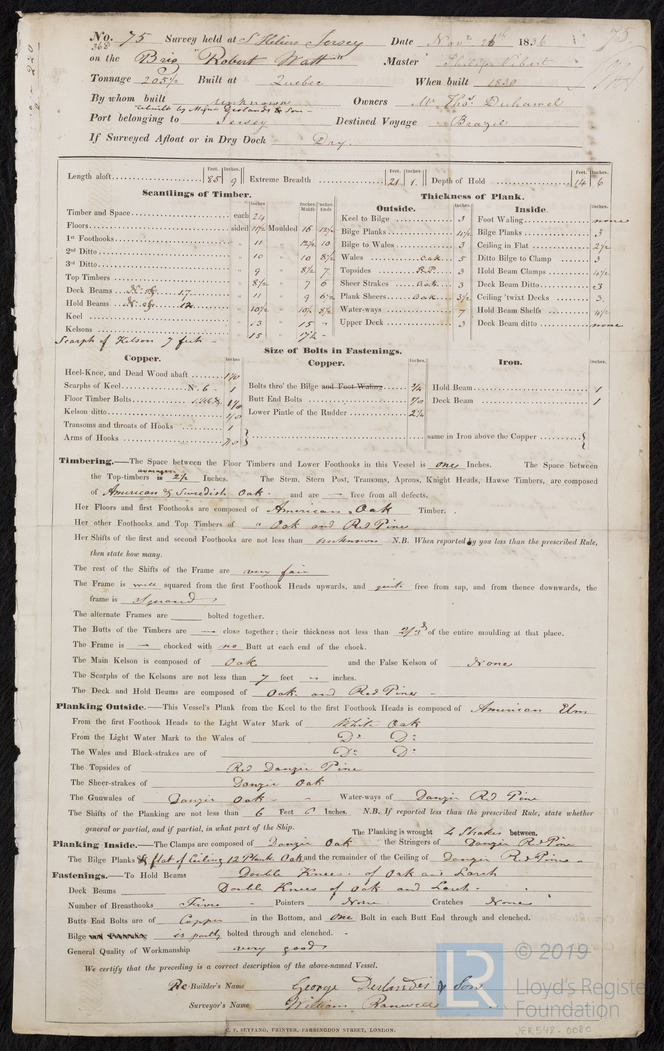 No. 75 Survey held at St Heliers Jersey Date Novr 26th 1836
368
on the Brig "Robert Watt" Master Philip Vibert
Tonnage 205½ Built at Quebec When built 1830
By whom built unknown Owners Mr Thos. Duhamel
rebuilt by Messrs Deslandes & Son
Port belonging to Jersey Destined Voyage Brazil
If Surveyed Afloat or in Dry Dock Dry.
Feet. Inches. Feet. Inches. Feet. Inches.
Length aloft 85 9 Extreme Breadth 21 1 Depth of Hold 14 6
Scantlings of Timber. Thickness of Plank.
Outside. Inside.
Timber and Space each 24 Keel to Bilge 3 Foot Waling none
Floors sided 11½ Moulded 16 12½ Bilge Planks 4½ Bilge Planks 3
1st Foothooks 11 12½ 10 Bilge to Wales 3 Ceiling in Flat 2½
2nd Ditto 10 10 8½ Wales Oak 5 Ditto Bilge to Clamp 3
3rd Ditto 9 8½ 7 Topsides R.P. 3 Hold Beam Clamps 4½
Top Timbers 8½ 7 6 Sheer Strakes Oak 3 Deck Beam Ditto 3
Deck Beams No. 17 11 9 6½ Plank Sheers Oak 3½ Ceiling 'twixt Decks 3
Hold Beams No. 12 10½ 10½ 8½ Water-ways 7 Hold Beam Shelfs 4½
Keel 13 15 Upper Deck 3 Deck Beam ditto none
Kelsons 15 17½
Scarph of Kelson 7 feet
Size of Bolts in Fastenings.
Copper. Copper. Iron.
Heel-Knee, and Dead Wood abaft
Scarphs of Keel No. 6 1 Bolts thro' the Bilge and Foot Waling Hold Beam 1
Floor Timber Bolts Butt End Bolts Deck Beam 1
Kelson ditto Lower Pintle of the Rudder 2¼
Transoms and throats of Hooks 1
Arms of Hooks same in Iron above the Copper
Timbering.—The Space between the Floor Timbers and Lower Foothooks in this Vessel is one Inches. The Space between
the Top-timbers is averages 2½ Inches. The Stem, Stern Post, Transoms, Aprons, Knight Heads, Hawse Timbers, are composed
of American & Swedish Oak and are — free from all defects.
Her Floors and first Foothooks are composed of American Oak Timber.
Her other Foothooks and Top Timbers of " Oak and Red Pine
Her Shifts of the first and second Foothooks are not less than unknown N.B. When reported by you less than the prescribed Rule,
then state how many.
The rest of the Shifts of the Frame are very fair
The Frame is well squared from the first Foothook Heads upwards, and quite free from sap, and from thence downwards, the
frame is squared
The alternate Frames are bolted together.
The Butts of the Timbers are — close together; their thickness not less than 2/3ds of the entire moulding at that place.
The Frame is — chocked with no Butt at each end of the chock.
The Main Kelson is composed of Oak and the False Kelson of None
The Scarphs of the Kelsons are not less than 7 feet — inches.
The Deck and Hold Beams are composed of Oak and Red Pine
Planking Outside.—This Vessel's Plank from the Keel to the first Foothook Heads is composed of American Elm
From the first Foothook Heads to the Light Water Mark of White Oak
From the Light Water Mark to the Wales of Do Do
The Wales and Black-strakes are of Do Do
The Topsides of Red Danzic Pine
The Sheer-strakes of Danzic Oak
The Gunwales of Danzic Oak Water-ways of Danzic Red Pine
The Shifts of the Planking are not less than 6 Feet 0 Inches. N.B. If reported less than the prescribed Rule, state whether
general or partial, and if partial, in what part of the Ship. The Planking is wrought 4 Strakes between.
Planking Inside.—The Clamps are composed of Danzic Oak the Stringers of Danzic Red Pine
The Bilge Planks & flat of Ceiling 12 Planks Oak and the remainder of the Ceiling of Danzic Red Pine
Fastenings.—To Hold Beams Double Knees of Oak and Larch
Deck Beams Double Knees of Oak and Larch
Number of Breasthooks Five Pointers None Crutches None
Butts End Bolts are of Copper in the Bottom, and one Bolt in each Butt End through and clenched.
Bilge is partly bolted through and clenched.
General Quality of Workmanship very good
We certify that the preceding is a correct description of the above-named Vessel.
Re Builder's Name George Deslandes & Son
Surveyor's Name William Ranwell
C. F. SEYFANG, PRINTER, FARRINGDON STREET, LONDON.
LR
© 2019
Lloyd's Register
Foundation
JER548-0080